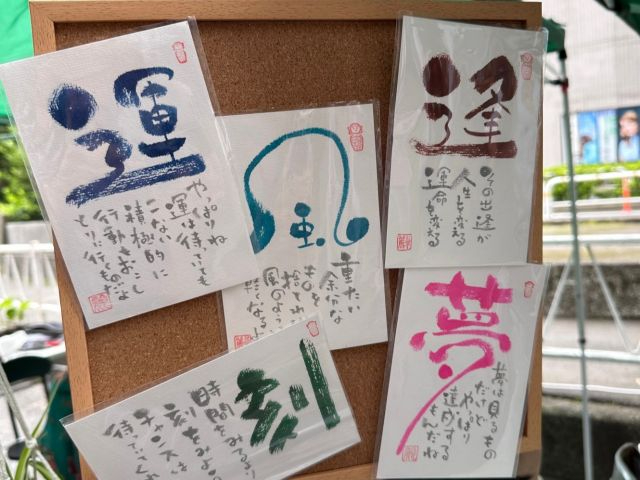 運
やっぱりね
運は待っていても
こない
積極的に
行動をおこし
とりに行くものだよ
風
重たい
余分な
ものを
捨てれば
風のように
軽くなるよ
逢
の出逢が
人生を変える
運命を変える
夢
夢は見るもの
だけど
やっぱり
達成する
もんだね
刻
時間をみるより
刻をみよ
チャンスは
待ってく